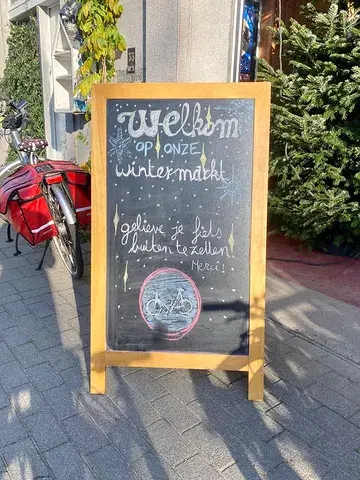 Welkom
OP ONZE
wintermarkt
gelieve je fiets
buiten te zetten!
Merci!